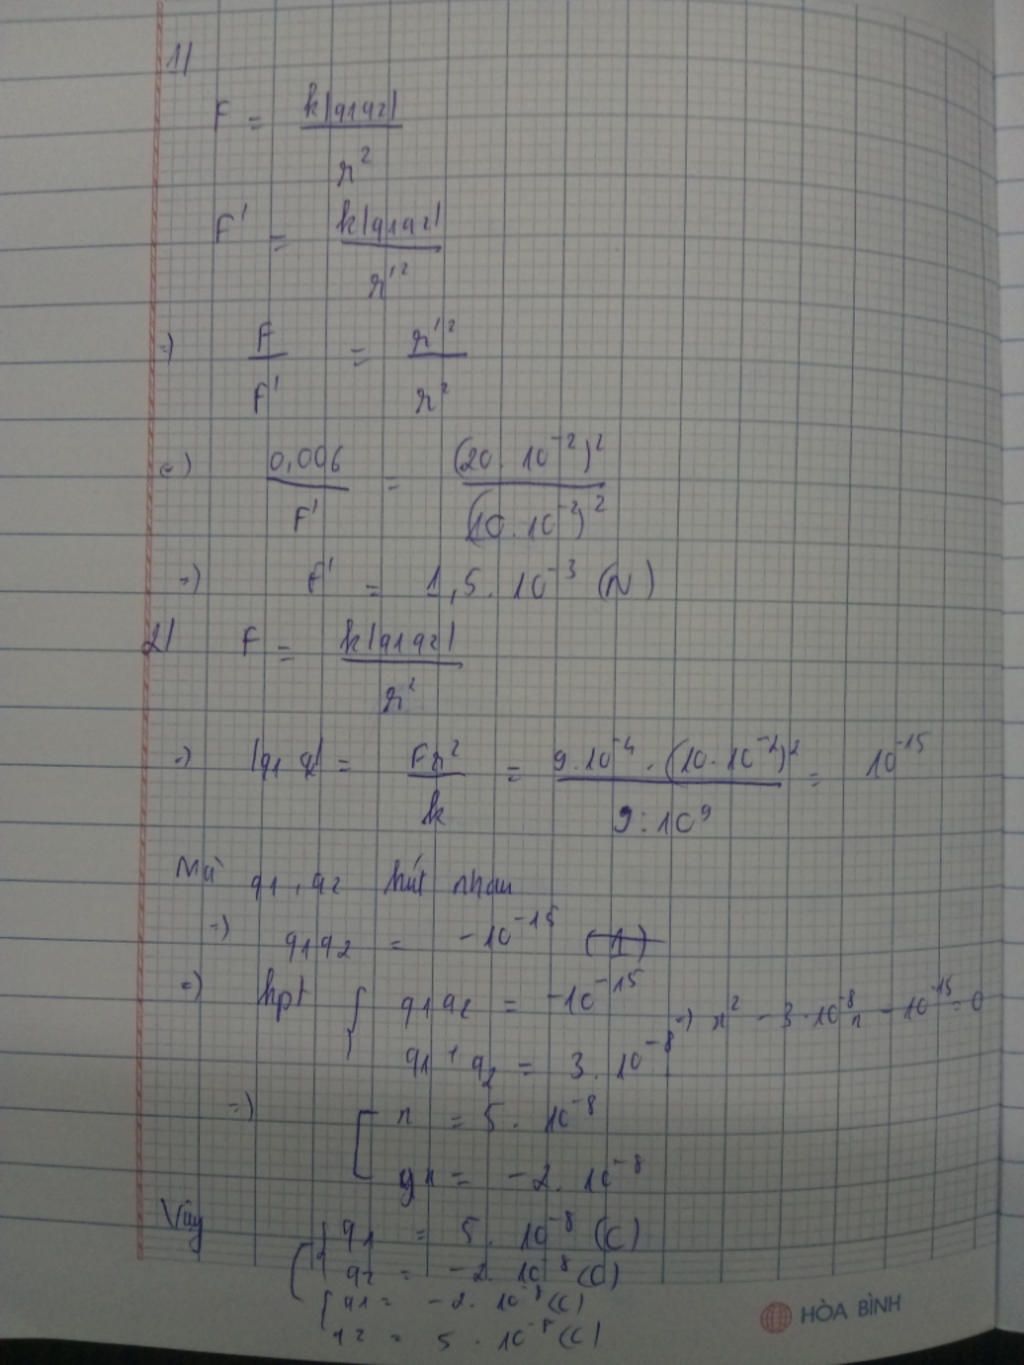 1)
F = k|q1q2| / r²
F' = k|q1q2| / r'²
=) F / F' = r'² / r²
=) 0,006 / F' = (20. 10⁻²)² / (10.10⁻²)²
=) F' = 1,5. 10⁻³ (N)
2) F = k|q1q2| / r²
=) |q1q2| = Fr² / k = 9.10⁻⁴ . (10.10⁻²)² / 9.10⁹ = 10⁻¹⁵
Mà q1, q2 hút nhau
=) q1q2 = -10⁻¹⁵ (1)
=) hpt { q1q2 = -10⁻¹⁵
q1 + q2 = 3. 10⁻⁸ =) x² - 3.10⁻⁸x - 10⁻¹⁵ = 0
=) [ x = 5. 10⁻⁸
x = -2. 10⁻⁸
Vậy [ { q1 = 5. 10⁻⁸ (C)
q2 = -2. 10⁻⁸ (C)
{ q1 = -2. 10⁻⁸ (C)
q2 = 5. 10⁻⁸ (C)
HÒA BÌNH